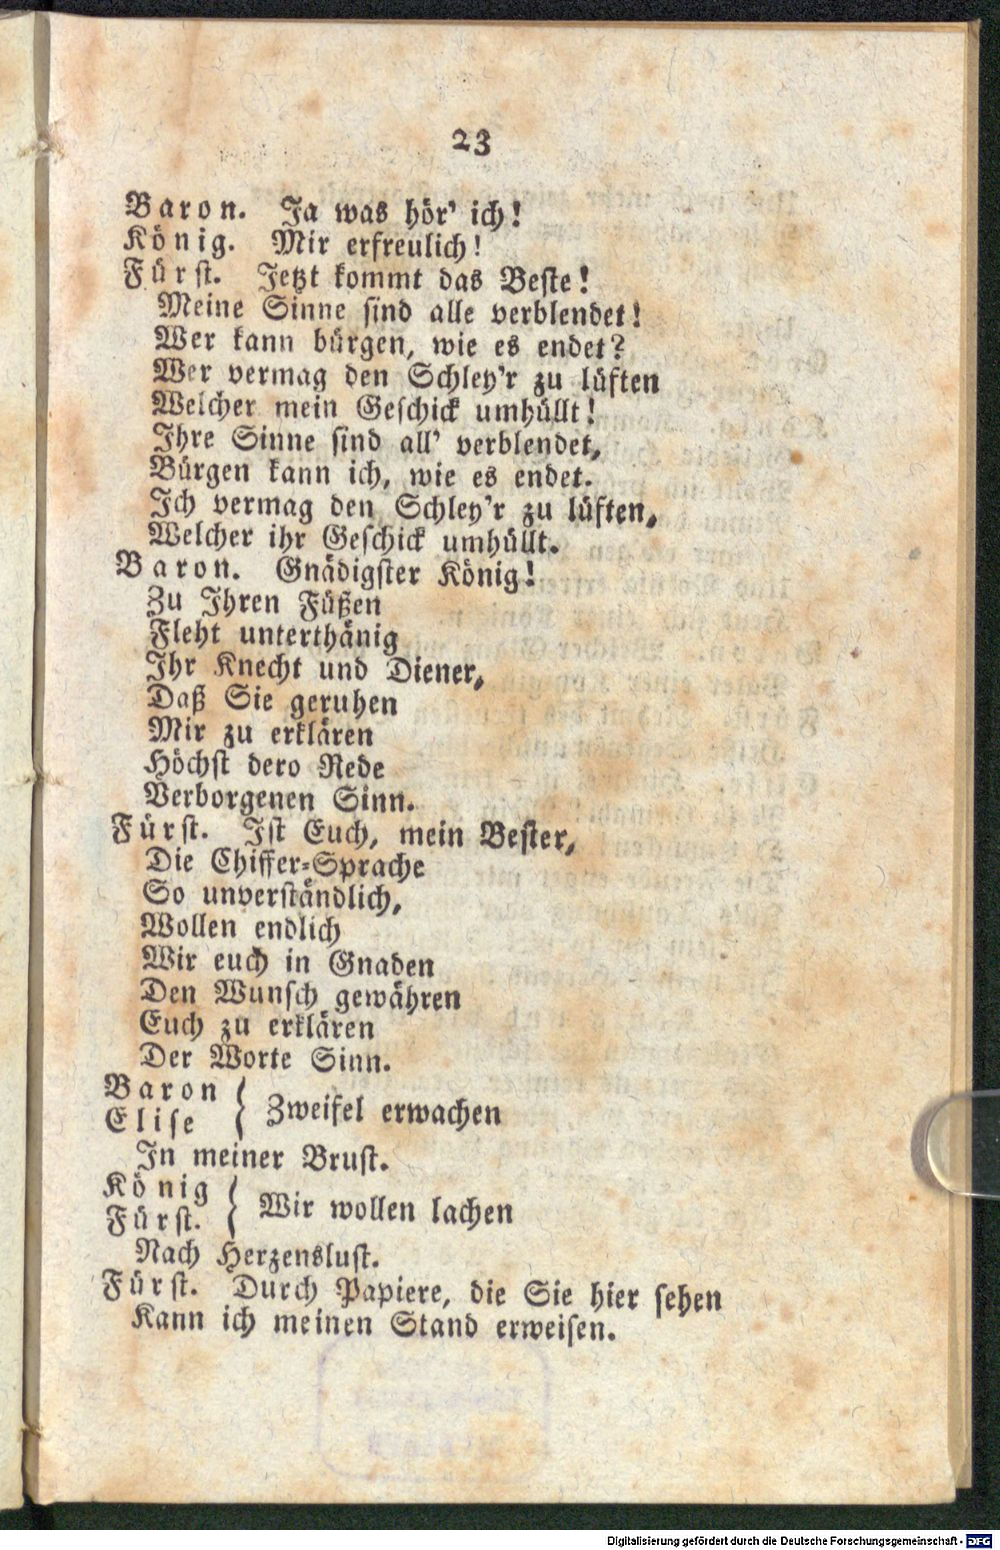 23
Baron. Ja was hör' ich!
König. Mir erfreulich!
Fürst. Jetzt kommt das Beste!
Meine Sinne sind alle verblendet!
Wer kann bürgen, wie es endet?
Wer vermag den Schley'r zu lüften
Welcher mein Geschick umhüllt!
Ihre Sinne sind all' verblendet,
Bürgen kann ich, wie es endet.
Ich vermag den Schley'r zu lüften,
Welcher ihr Geschick umhüllt.
Baron. Gnädigster König!
Zu Ihren Füßen
Fleht unterthänig
Ihr Knecht und Diener,
Daß Sie geruhen
Mir zu erklären
Höchst dero Rede
Verborgenen Sinn.
Fürst. Ist Euch, mein Bester,
Die Chiffer-Sprache
So unverständlich,
Wollen endlich
Wir euch in Gnaden
Den Wunsch gewähren
Euch zu erklären
Der Worte Sinn.
Baron
Elise { Zweifel erwachen
In meiner Brust.
König
Fürst. { Wir wollen lachen
Nach Herzenslust.
Fürst. Durch Papiere, die Sie hier sehen
Kann ich meinen Stand erweisen.
Digitalisierung gefördert durch die Deutsche Forschungsgemeinschaft - DFG